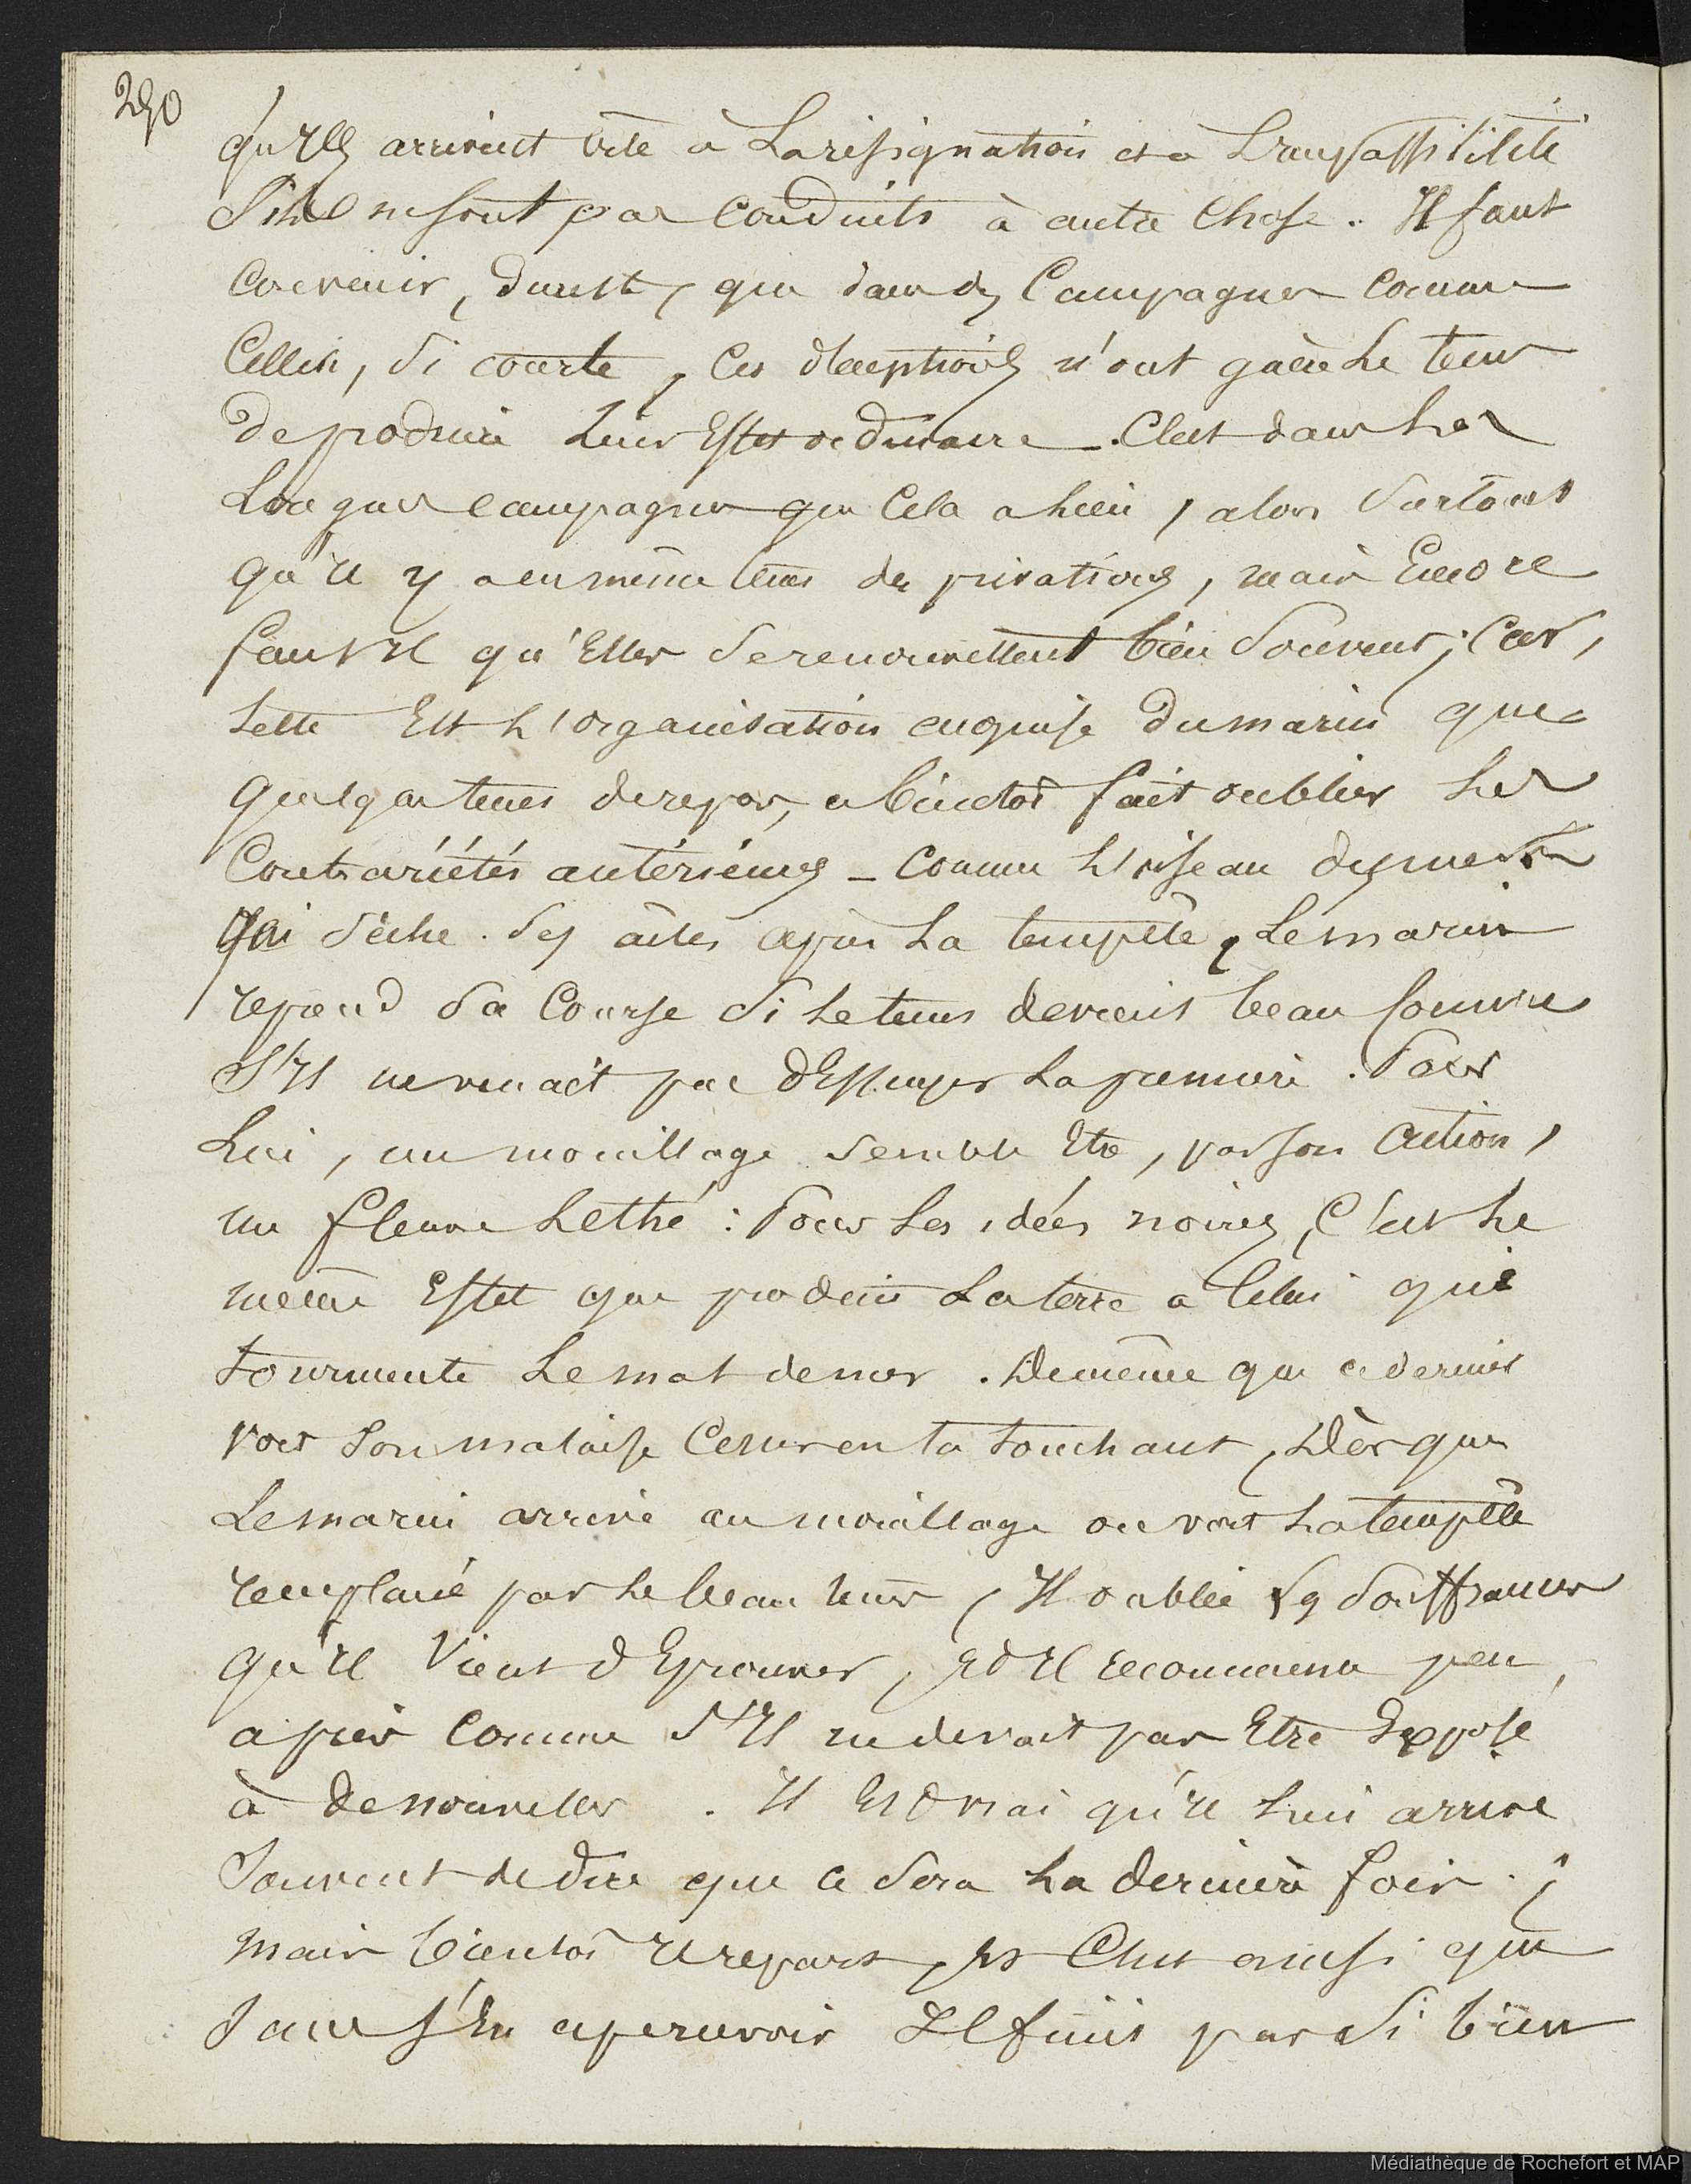 290
qu'Ils arrivent vite à La résignation et à L'impassibilité
S'ils ne sont pas conduits à autre Chose. Il faut
Convenir, du reste, que dans des Campagnes comme
Celle ci, si courte, Ces déceptions n'ont guère Le tems
de produire Leur Effet ordinaire. C'est dans Les
Longues campagnes que Cela a Lieu, alors Surtout
qu'il y a en même tems des privations, mais Encore
faut il qu'Elles Se renouvellent bien Souvent; Car,
telle Est L'organisation acquise du marin que
quelque tems de repos, a bientôt fait oublier Les
Contrariétés antérieures _ comme L'oiseau des mers
qui Sèche Ses ailes après La tempête, Le marin
reprend Sa Course Si Le tems devenis beau comme
S'Il ne venait pas d'Essuyer La première. Pour
Lui, un mouillage Semble Etre, par son action,
un fleuve Lethé: Pour Les idées noires, C'est Le
même Effet que produit La terre à Celui que
tourmente Le mal de mer. De même que ce dernier
voit Son malaise Cesser en La touchant, Dès que
Le marin arrive au mouillage ou voit La tempête
remplacée par Le beau tems, Il oublie Les Souffrances
qu'il Vient d'Eprouver, Et Il recommence peu
après comme S'Il ne devait pas Etre Exposé
à de nouvelles. Il Est vrai qu'il Lui arrive
Souvent de dire que ce Sera La dernière fois;
mais bientôt il repart, Et C'est ainsi que
Sans s'En apercevoir Il finit par Si bien
Médiathèque de Rochefort et MAP